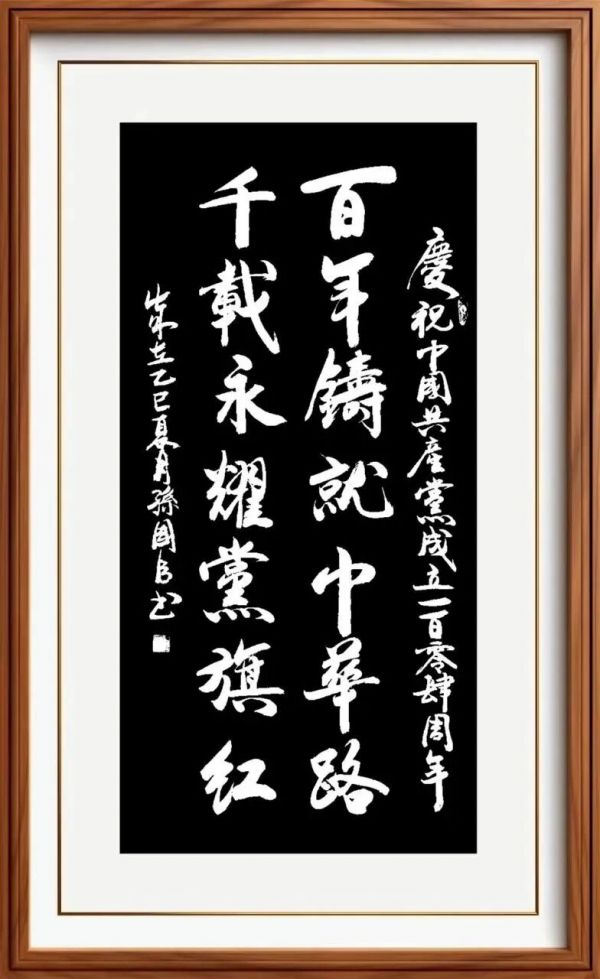 慶祝中國共產黨成立一百零肆周年
百年鑄就中華路
千載永耀黨旗紅
歲在乙巳夏月孫國良书